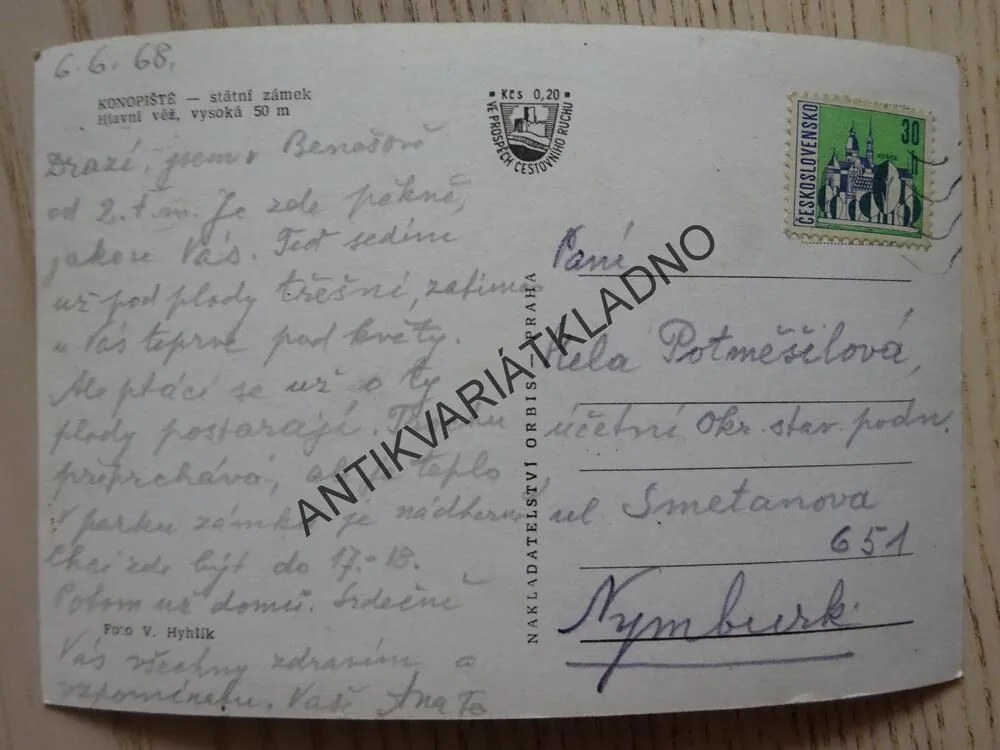 6.6.68.
KONOPIŠTĚ — státní zámek
Hlavní věž, vysoká 50 m
Drazí, jsem v Benešově
od 2. t. m. Je zde pěkně,
jako u Vás. Teď sedím
už pod plody třešní, zatímco
u Vás teprve pod květy.
Ale ptáci se už o ty
plody postarají. Trochu
přeprchává, ale teplo
V parku zámku je nádherně
Chci zde být do 17.-18.
Potom už domů. Srdečně
Foto V. Hyhlík
Vás všechny zdravím a
vzpomínám. Vaše
Kčs 0,20
VE PROSPĚCH CESTOVNÍHO RUCHU
ČESKOSLOVENSKO
30
NAKLADATELSTVÍ ORBIS - PRAHA
Paní
Hela Potměšilová,
účetní Okr. stav. podn.
ul Smetanova
651
Nymburk
ANTIKVARIÁTKLADNO